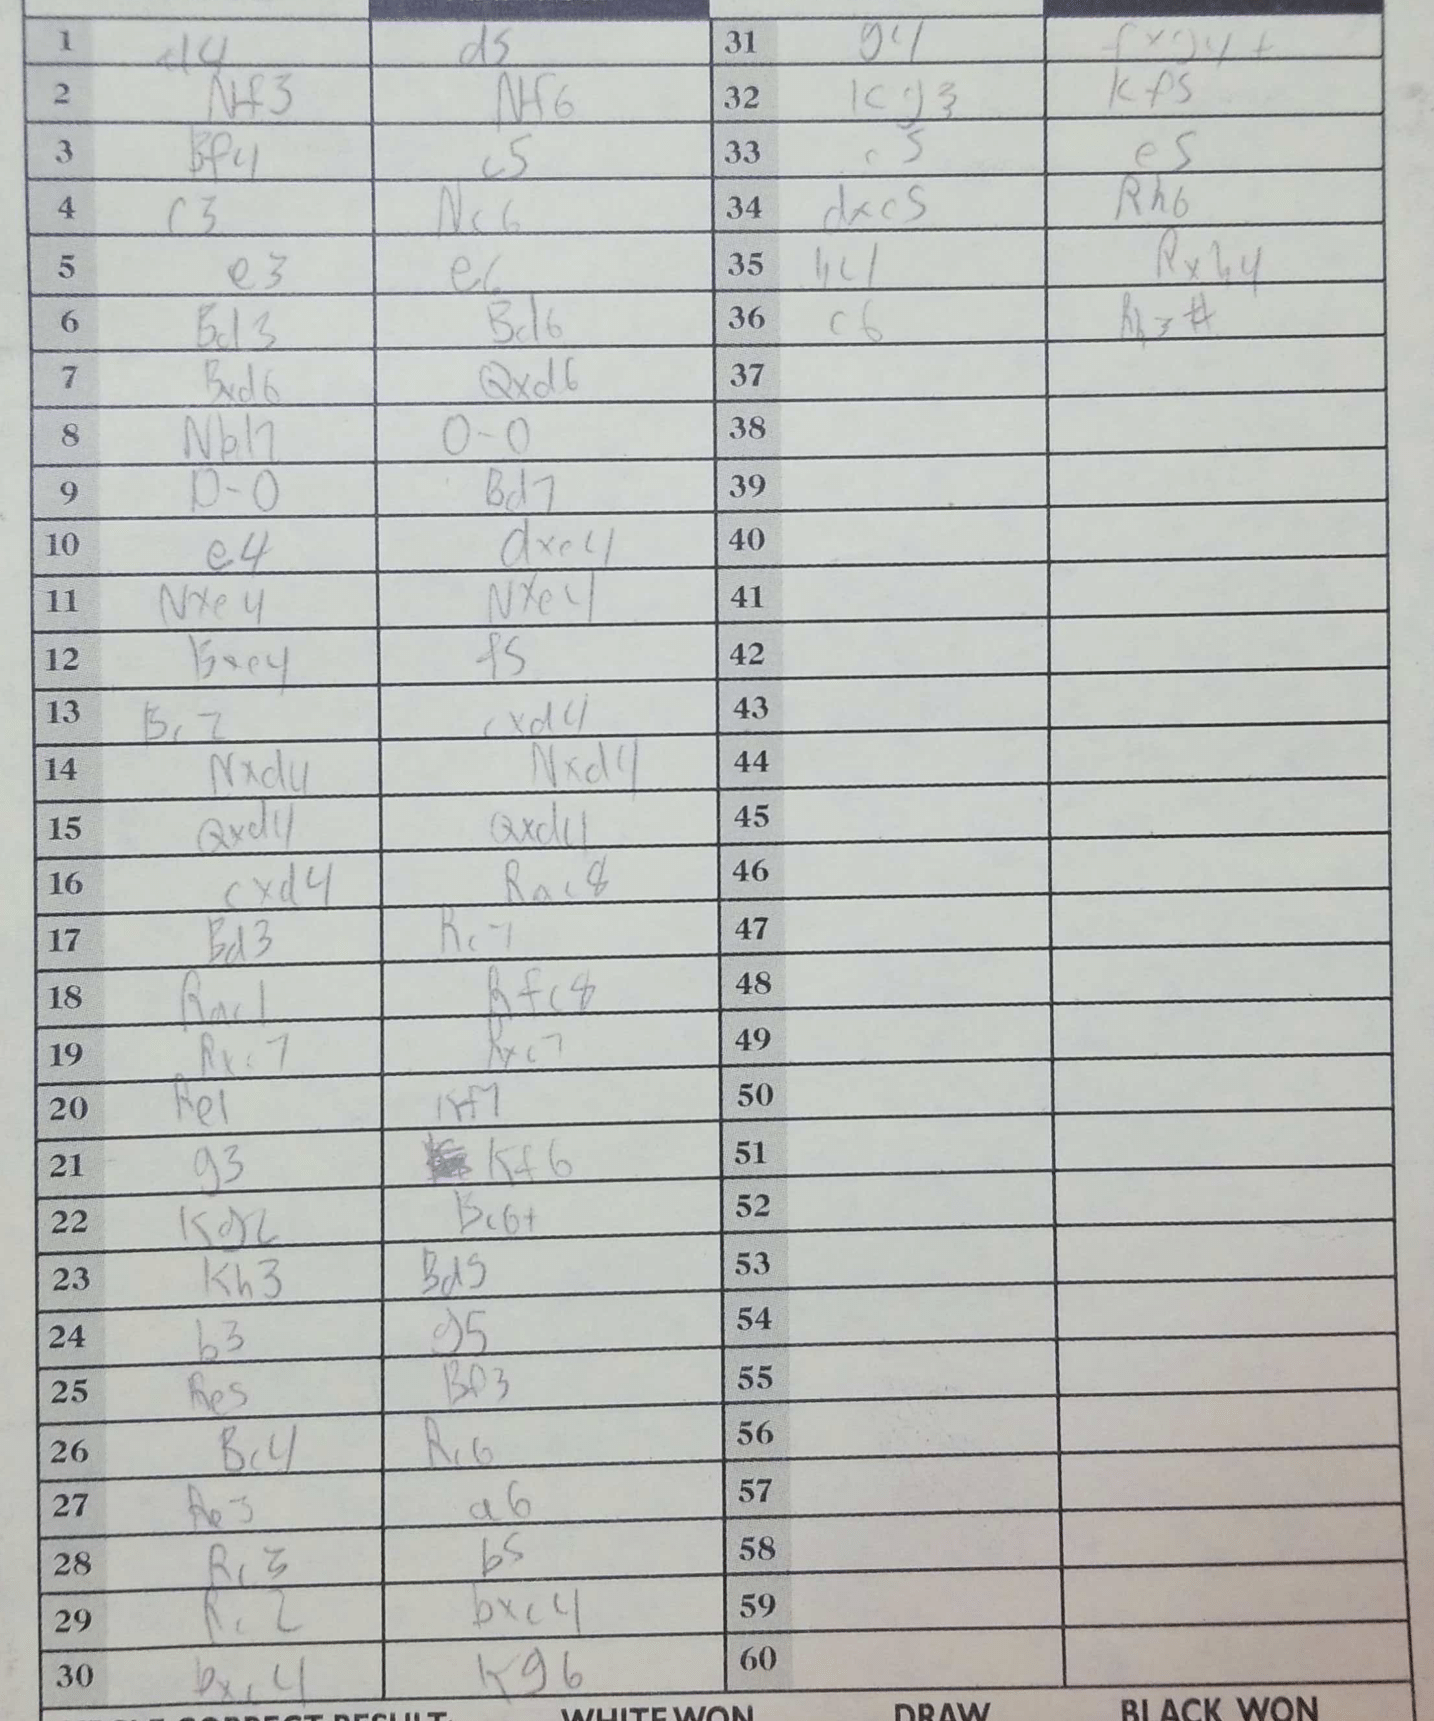 1 d4 d5 31 g4 fxg4+
2 Nf3 Nf6 32 Kg3 Kf5
3 Bf4 c5 33 c5 e5
4 c3 Nc6 34 dxc5 Rh6
5 e3 e6 35 h4 Rxh4
6 Bd3 Bd6 36 c6 Rh3#
7 Bxd6 Qxd6 37
8 Nbd2 0-0 38
9 0-0 Bd7 39
10 e4 dxe4 40
11 Nxe4 Nxe4 41
12 Bxe4 f5 42
13 Bc2 cxd4 43
14 Nxd4 Nxd4 44
15 Qxd4 Qxd4 45
16 cxd4 Rac8 46
17 Bd3 Rc7 47
18 Rac1 Rfc8 48
19 Rxc7 Rxc7 49
20 Re1 Kf7 50
21 g3 Kf6 51
22 Kg2 Bc6+ 52
23 Kh3 Bd5 53
24 b3 g5 54
25 Re5 Bf3 55
26 Bc4 Rc6 56
27 Re3 a6 57
28 Rc3 b5 58
29 Rc2 bxc4 59
30 bxc4 Kg6 60
CORRECT RESULT: WHITE WON DRAW BLACK WON